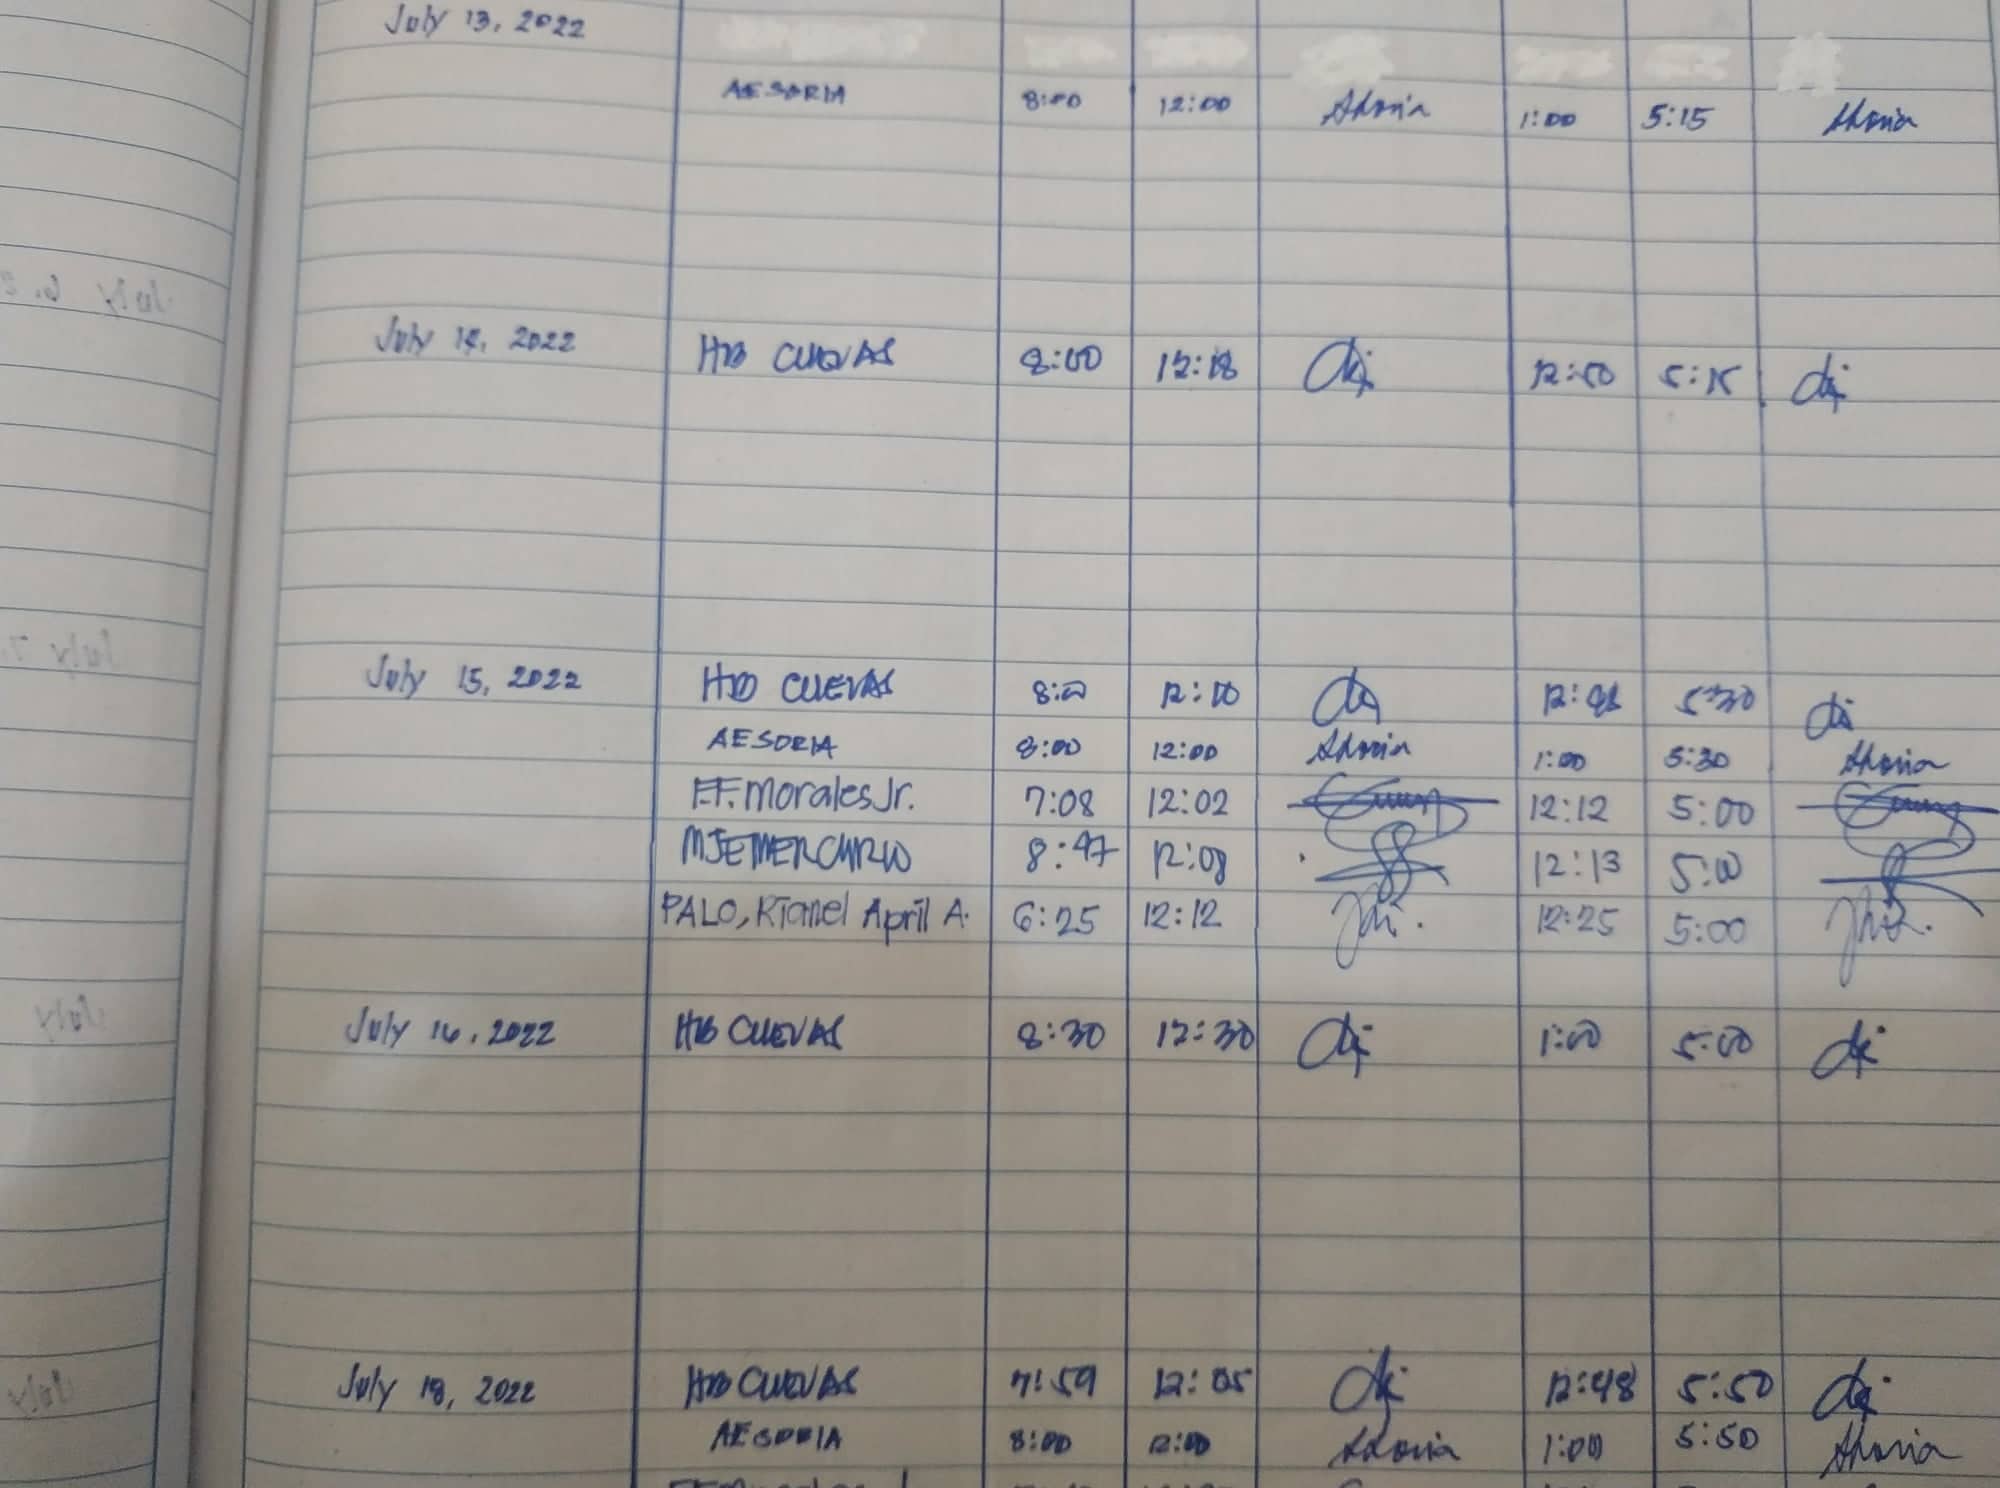 July 13, 2022
AESORIA 8:00 12:00 1:00 5:15
July 14, 2022 HD CUEVAS 8:00 12:18 12:50 5:15
July 15, 2022 HD CUEVAS 8:00 12:10 5:30
AESORIA 8:00 12:00 1:00 5:30
F.F. Morales Jr. 7:08 12:02 12:12 5:00
MJEMERCURIO 8:47 12:08 12:13 5:00
PALO, Rianel April A. 6:25 12:12 12:25 5:00
July 16, 2022 HD CUEVAS 8:30 12:30 1:00 5:00
July 18, 2022 HD CUEVAS 7:59 12:05 12:48 5:50
AESORIA 8:00 12:00 1:00 5:50